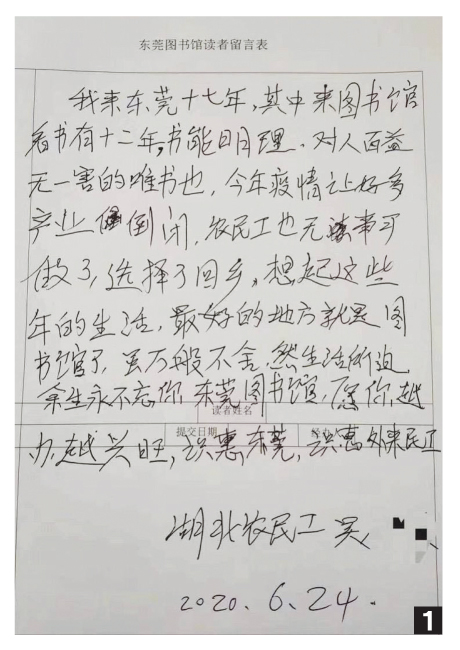 东莞图书馆读者留言表
我来东莞十七年,其中来图书馆
看书有十二年,书能明理、对人百益
无一害的唯书也,今年疫情让好多
产业倒闭,农民工也无事可
做了,选择了回乡,想起这些
年的生活,最好的地方就是图
书馆了,虽万般不舍,然生活所迫
余生永不忘你,东莞图书馆,愿你越
读者姓名
提交日期
办越兴旺,识惠东莞,识惠外来民工
湖北农民工 吴
2020.6.24.
1